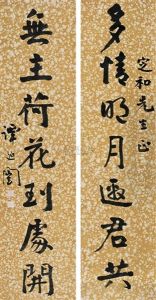 多情明月邀君共
定和先生正
無主荷花到處開
譚延闓